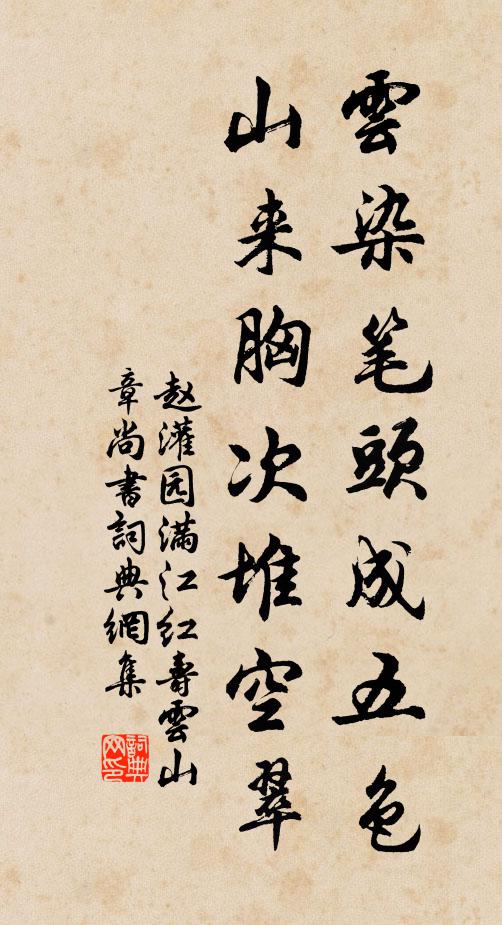 雲染笔頭成五色
山来胸次堆空翠
赵灌园满江红壽雲山
章尚書詞典網集
詞典网印